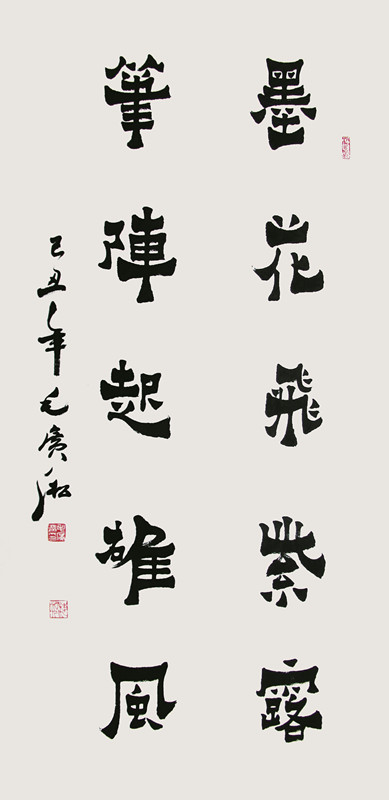 墨花飛紫露
筆陣起雄風
己丑年毛廣淞